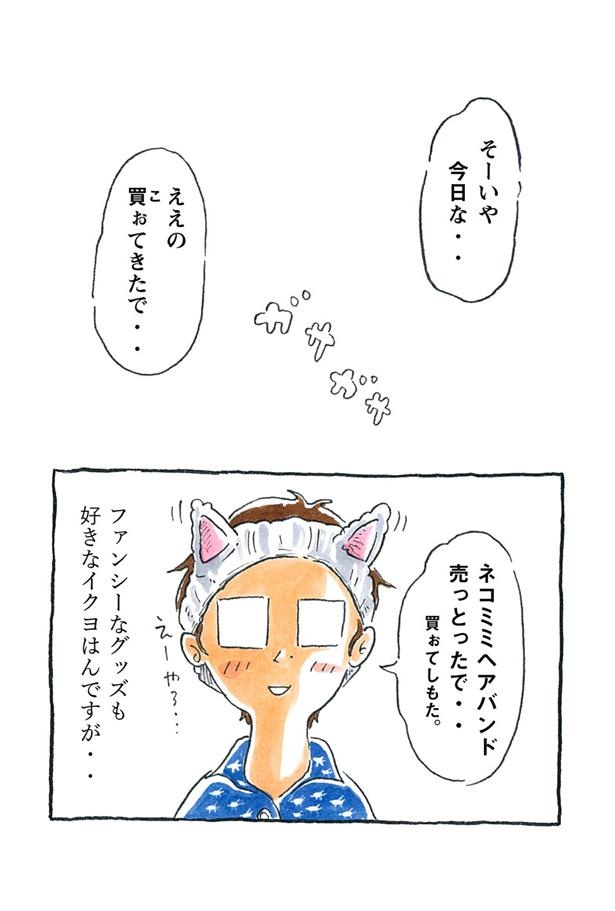 そーいや
今日な・・
ええの
買ぉてきたで・・
こ
ガサ
ガサ
ネコミミヘアバンド
売っとったで・・
買ぉてしもた。
えーやろ・・
ファンシーなグッズも
好きなイクヨはんですが・・